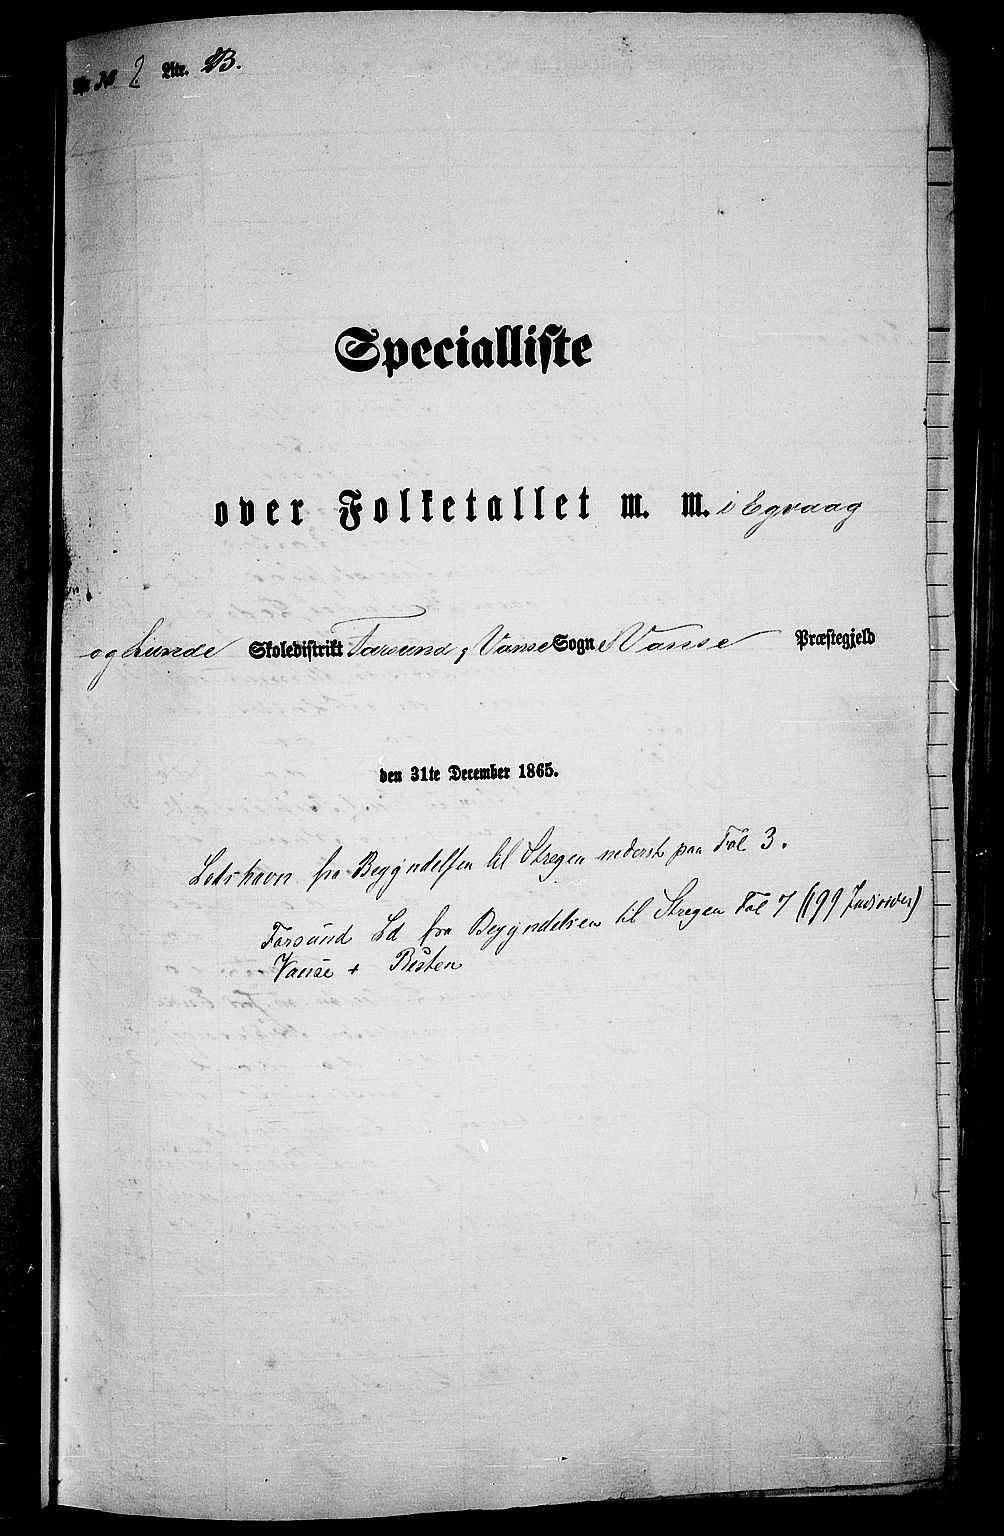 No 2 Litr. B.
Specialliste
over Folketallet m. m. i Egvaag
og Lunde Skoledistrikt Farsund, Vanse Sogn Vanse Præstegjeld
den 31te December 1865.
Loshavn fra Begyndelsen til Stregen nederst paa Fol 3.
Farsund Ld fra Begyndelsen til Stregen Fol 7 (199 Individer)
Vanse + Resten